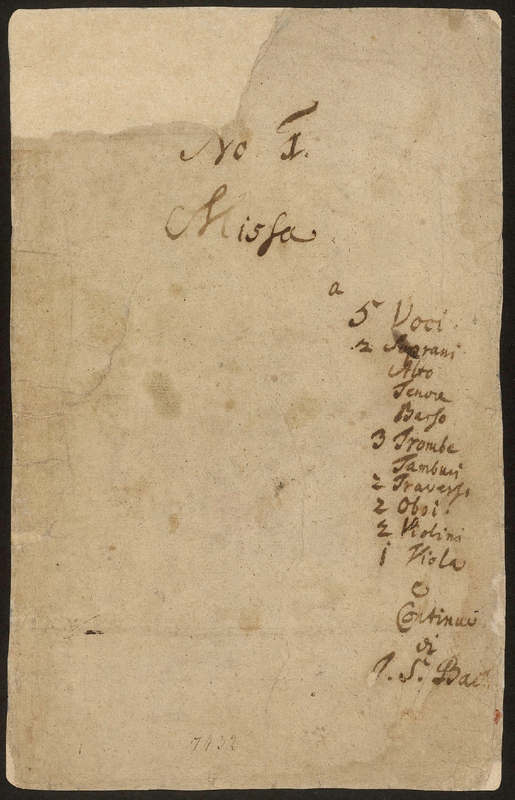 No 1.
Missa
a
5 Voci.
2 Soprani
Alto
Tenore
Basso
3 Trombe
Tamburi
2 Traversi
2 Oboi.
2 Violini
1 Viola
e
Continuo
di
J. S. Bac
7432